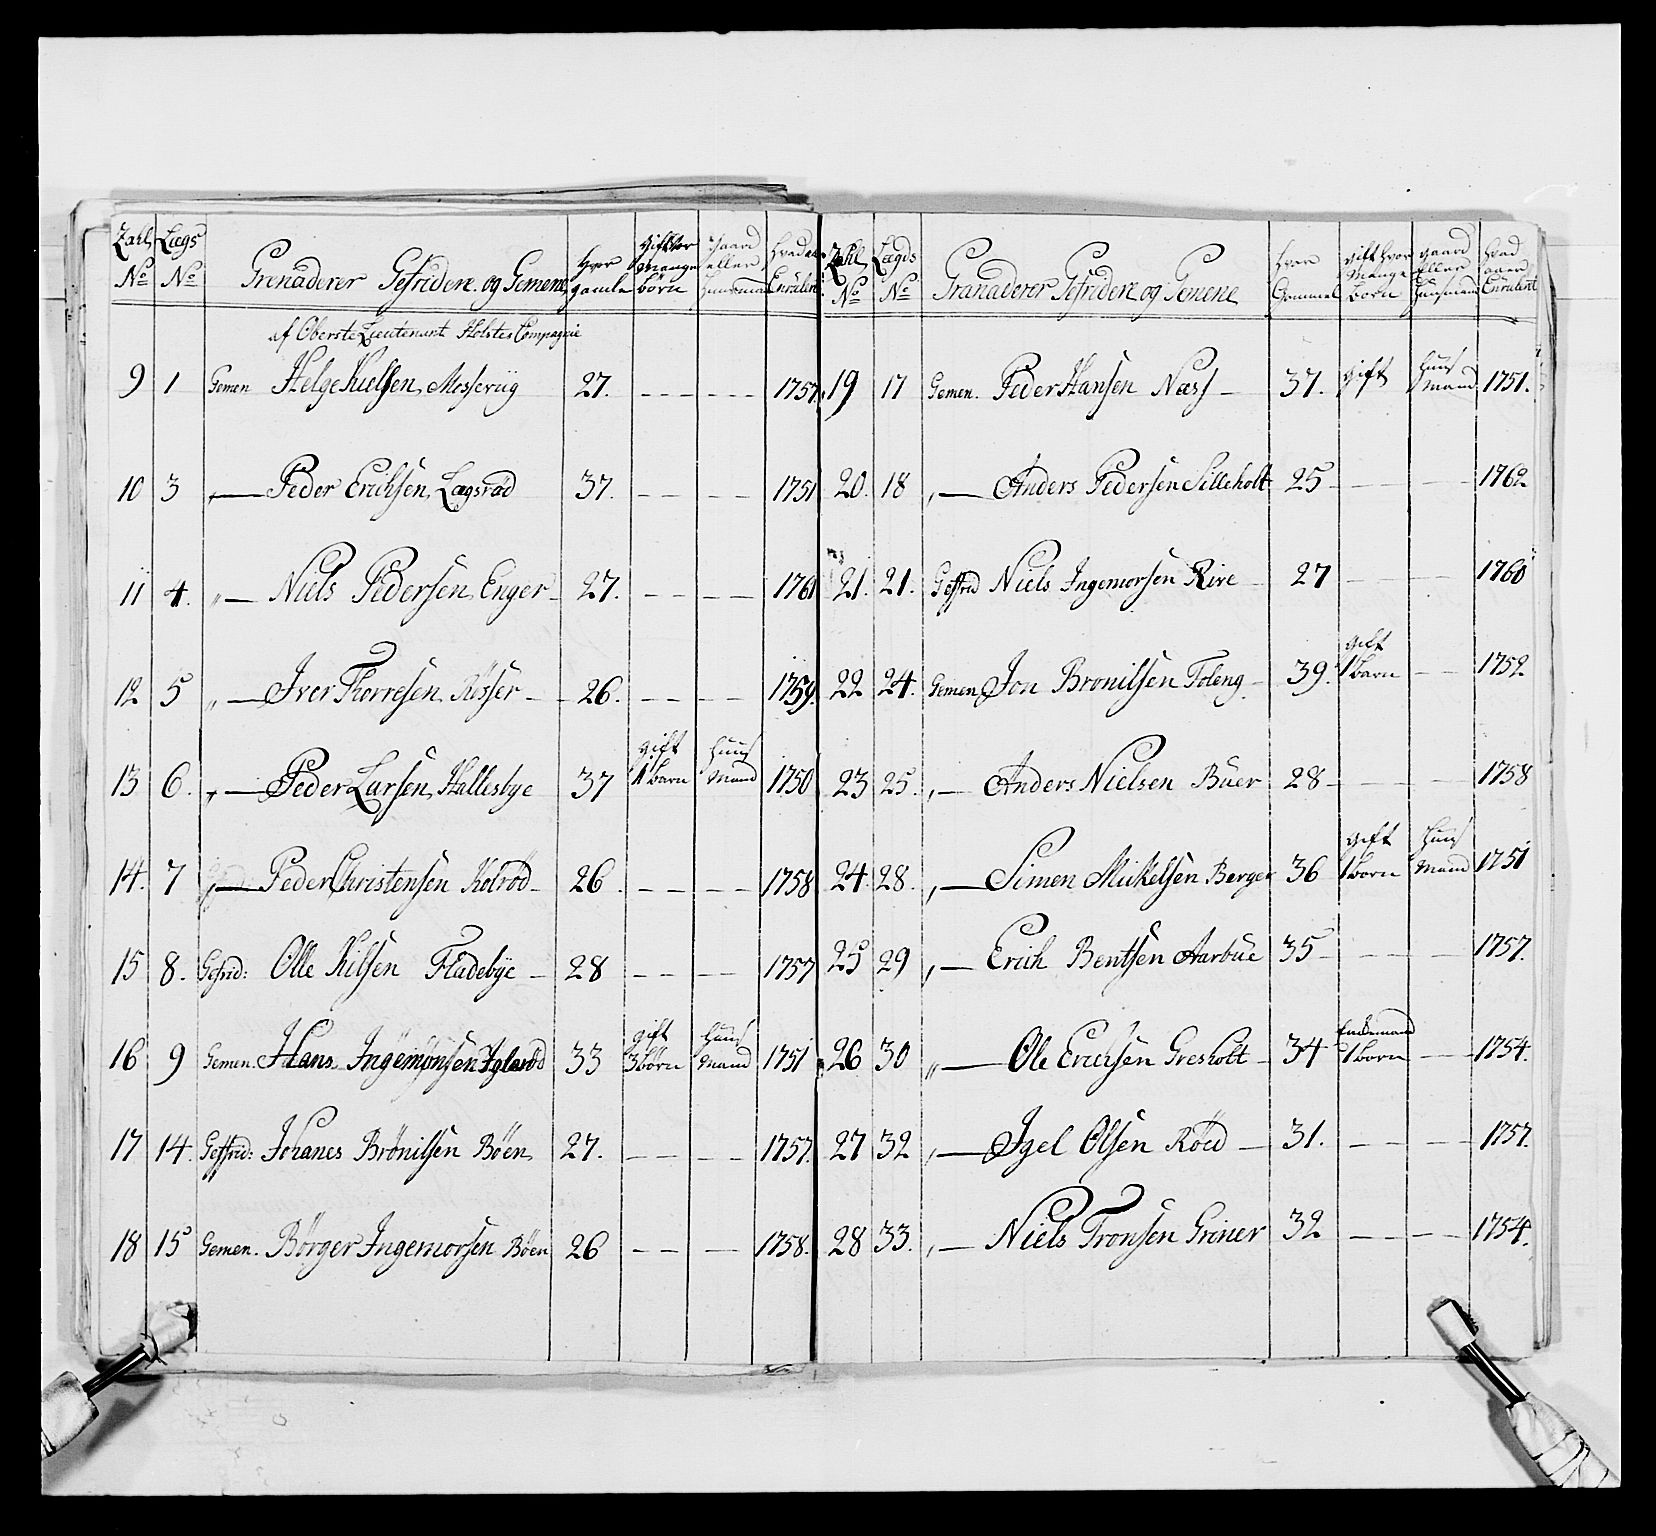 Zahl No | Lægs No | Grenaderer Gefridere og Gemene | Hvor gamle | gift hvor mange børn | gaard eller huusmand | Hvad aar Enrulert
af Oberste Lieutenant Holstes Compagnie
9 | 1 | Gemen Helge Kielsen, Messeriig | 27. | – – – | – – – | 1757.
10 | 3 | „— Peder Erichsen, Lagsrød | 37. | – – | – – | 1751
11 | 4. | „— Niels Pedersen, Enger | 27. | – – | – – | 1761
12 | 5 | „— Iver Thorresen, Røsser | 26. | – – | – – | 1759.
13 | 6. | „— Peder Larsen, Hallesbye | 37 | gift 1 barn | huus Mand | 1750
14. | 7 | „— Peder Christensen Kolrød | 26. | – – | – – | 1758
15 | 8. | Gefrid: Olle Kilsen Fladebÿe | 28 | – – | – – | 1757
16 | 9 | Gemen. Hans Ingemorsen Iglerød | 33 | gift 3 børn | huus Mand | 1751
17 | 14. | Geffrid: Johanes Brønilsen Bøen | 27. | – – | – – | 1757.
18 | 15 | Gemen. Børger Ingemorsen Bøen | 26 | – – | – – | 1758.
Zahl No | Lægds No | Granaderer Gefridere og Gemene | hvor Gammel | gift hvor Mange børn | gaard Eller huusmand | Hvad aaer Enrulert
19 | 17 | Gemen. Peder Hansen Næss | 37. | gift | huus Mand | 1751.
20. | 18 | „— Anders Pedersen Silleholt | 25 | – – | – – | 1762
21. | 21. | Geffrid Niels Ingemorsen Rire | 27 | – – | – – | 1760
22 | 24. | Gemen, Jon Bronilsen Toleng | 39. | gift 1 barn | – – | 1752
23 | 25. | „— Anders Nielsen Buer | 28 | – – | – – | 1758
24 | 28. | „— Simen Mickelsen Berger | 36 | gift 1 børn | huus Mand | 1751
25 | 29 | „— Erich Bentsen Aarbue | 35 | – – | – – | 1757.
26 | 30 | „— Ole Erichsen Gresholt | 34 | Enckemand 1 børn | – – | 1754.
27 | 32 | „— Igel Olsen Røed | 31. | – – | – – | 1757.
28 | 33. | „— Niels Tronsen Griner | 32 | – – | – – | 1754.